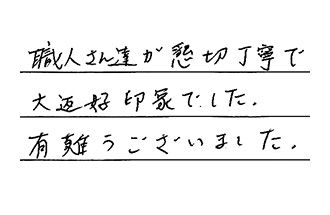 職人さん達が懇切丁寧で
大変好印象でした.
有難うございました.